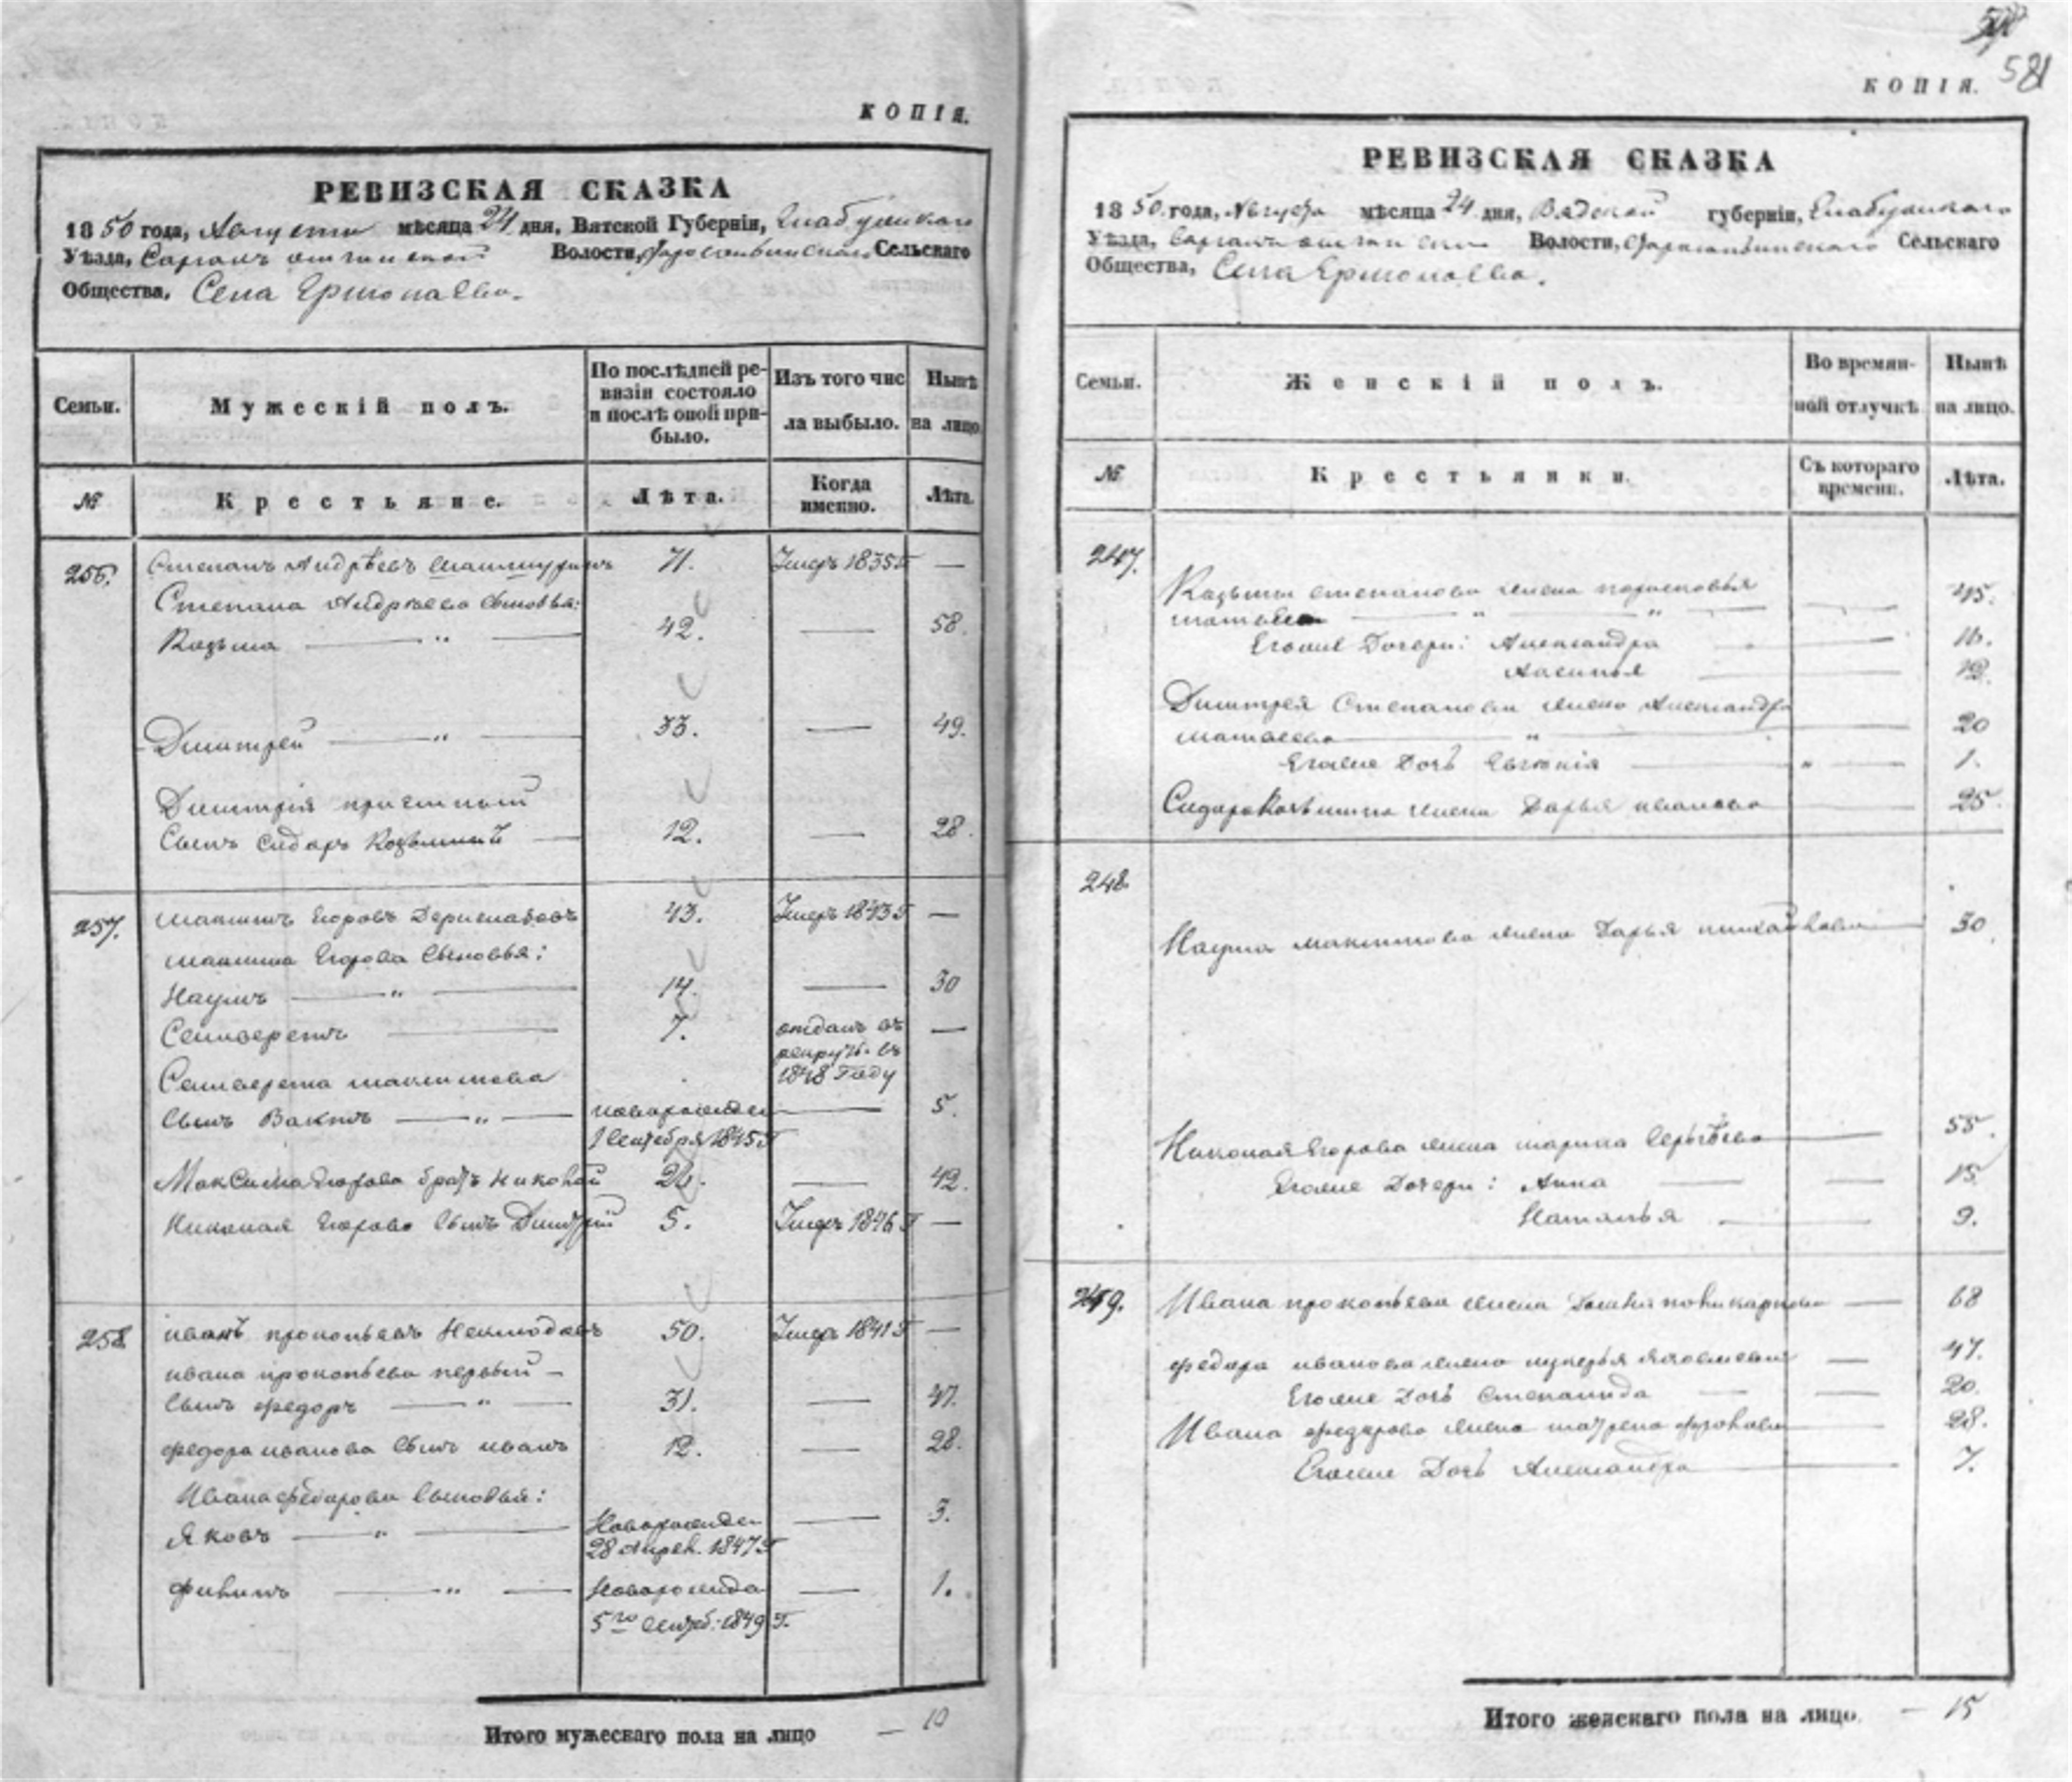 КОПІЯ.
РЕВИЗСКАЯ СКАЗКА
1850 года, Августа мѣсяца 24 дня, Вятской Губерніи, Елабужскаго
Уѣзда, Волости, Сельскаго
Общества, Села
Семьи.
Мужескій полъ.
По послѣдней ре-
визіи состояло
и послѣ оной при-
было.
Изъ того чис
ла выбыло.
Нынѣ
на лицо.
№
Крестьяне.
Лѣта.
Когда
именно.
Лѣта.
256. Степанъ Андрѣевъ 71. Умеръ 1835 г —
Степана Андрѣева сыновья:
Козьма — " — 42. — 58.
Дмитрей — " — 33. — 49.
Дмитрія пріемный
сынъ Сидаръ Козьминъ — 12. — 28.
257. Максимъ Егоровъ 43. Умеръ 1843 г —
Максима Егорова сыновья:
Наумъ — " — 14. — 30
Селиверстъ — 7. отданъ въ —
рекруты въ
1848 году
Селиверста Максимова
сынъ — " — новорожден — 5.
1 Сентября 1845 г
Максима Егорова братъ Николай — 42.
Николая Егорова сынъ Дмитрій 5. Умеръ 1846 г —
258. Иванъ Прокопьевъ 50. Умеръ 1841 г —
Ивана Прокопьева первый —
сынъ Федоръ — " — 31. — 47.
Федора Иванова сынъ Иванъ 12. — 28.
Ивана Федорова сыновья:
Яковъ — " — Новорожден — 3.
28 Апрел. 1847 г
Филипъ — " — Новорожде — 1.
5го Сентеб: 1849 г.
Итого мужескаго пола на лицо — 10
581
КОПІЯ.
РЕВИЗСКАЯ СКАЗКА
1850 года, Августа мѣсяца 24 дня, Вядской губерніи, Елабужскаго
Уѣзда, Волости, Сельскаго
Общества, Села
Семьи.
Женскій полъ.
Во времян-
ной отлучкѣ
Нынѣ
на лицо.
№
Крестьянки.
Съ котораго
времени.
Лѣта.
247.
Козьмы Степанова жена Парасковья
— " — " — 45.
Егоже Дочери: Александра — 16.
Аксинья —
Дмитрея Степанова жена Александра
Матвеева — " — 20
Егоже Дочь Евгенія — " — 1.
Сидара Козьмина жена Дарья Иванова — 25.
248.
Наума Максимова жена Дарья — 30.
Николая Егорова жена Марина Сергѣева — 55.
Егоже Дочери: Анна — 15.
Наталья — 9.
249. Ивана Прокопьева жена Поликарпова — 68
Федора Иванова жена Лукерья — 47.
Егоже Дочь Степанида — 20.
Ивана Федорова жена Матрена — 28.
Егоже Дочь Александра — 7.
Итого женскаго пола на лицо — 15